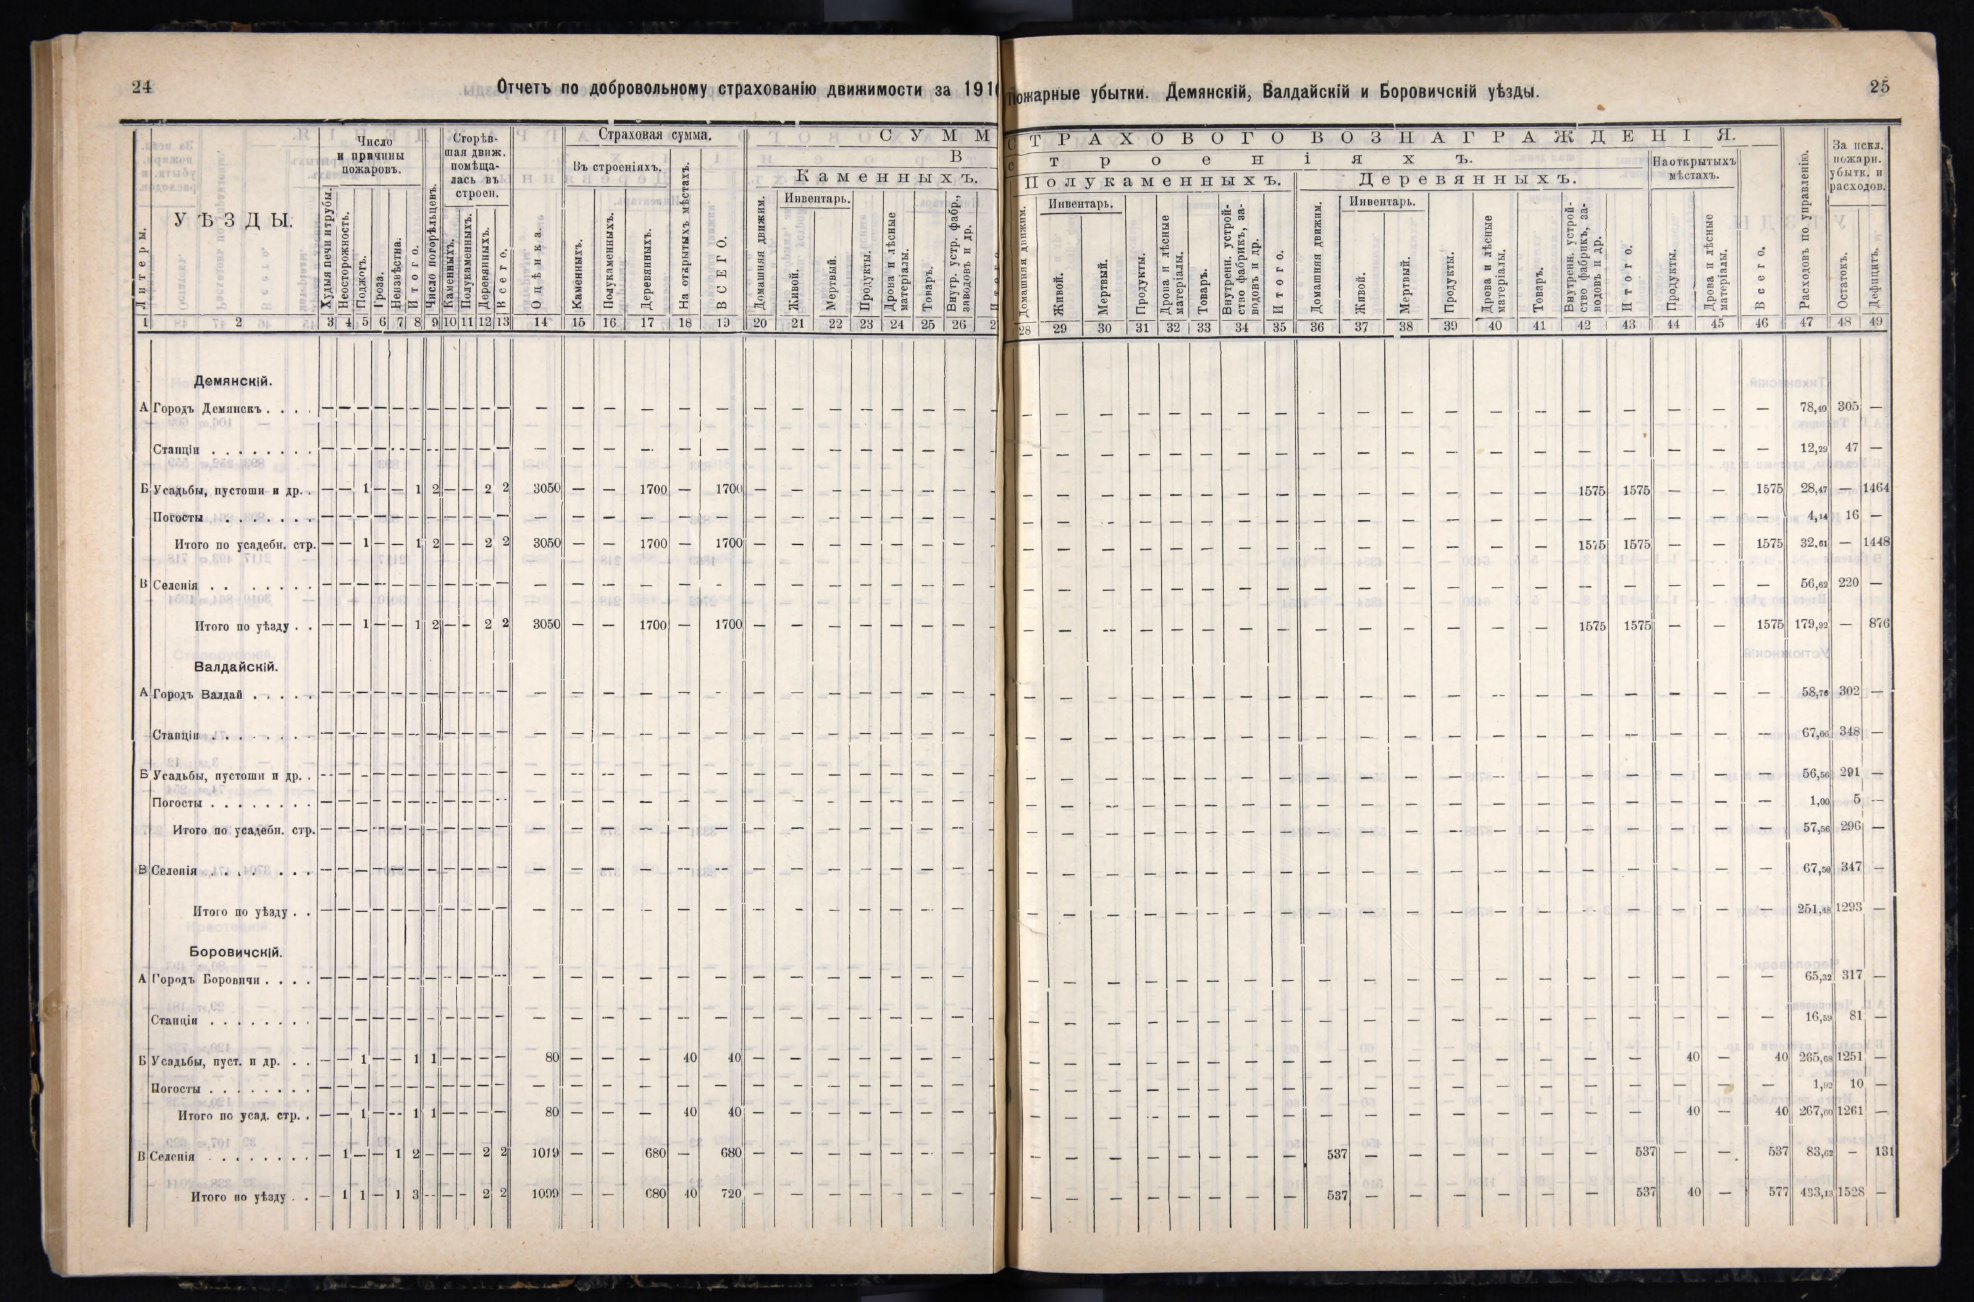 24
Отчетъ по добровольному страхованію движимости за 191
Литеры.
УѢЗДЫ.
Число и причины пожаровъ.
Худыя печи и трубы.
Неосторожность.
Поджогъ.
Гроза.
Неизвѣстна.
Итого.
Число погорѣльцевъ.
Сгорѣв-
шая движ.
помѣща-
лась въ
строен.
Каменныхъ.
Полукаменныхъ.
Деревянныхъ.
Всего.
Оцѣнка.
Страховая сумма.
Въ строеніяхъ.
Каменныхъ.
Полукаменныхъ.
Деревянныхъ.
На открытыхъ мѣстахъ.
ВСЕГО.
СУММ
В
Каменныхъ.
Домашняя движим.
Инвентарь.
Живой.
Мертвый.
Продукты.
Дрова и лѣсные матеріалы.
Товаръ.
Внутр. устр. фабр., заводовъ и др.
Итого
1 2 3 4 5 6 7 8 9 10 11 12 13 14 15 16 17 18 19 20 21 22 23 24 25 26 2
Демянскій.
А Городъ Демянскъ . . . . — — — — — — — — — — — — — — — — — — — — — — — —
Станціи . . . . . . . . — — — — — — — — — — — — — — — — — — — — — — — —
Б Усадьбы, пустоши и др. . — — 1 — — 1 2 — — 2 2 3050 — — 1700 — 1700 — — — — — — —
Погосты . . . . . . . — — — — — — — — — — — — — — — — — — — — — — — —
Итого по усадебн. стр. — — 1 — — 1 2 — — 2 2 3050 — — 1700 — 1700 — — — — — — —
В Селенія . . . . . . . — — — — — — — — — — — — — — — — — — — — — — — —
Итого по уѣзду . . — — 1 — — 1 2 — — 2 2 3050 — — 1700 — 1700 — — — — — — —
Валдайскій.
А Городъ Валдай . . . . . — — — — — — — — — — — — — — — — — — — — — — — —
Станціи . . . . . . . . — — — — — — — — — — — — — — — — — — — — — — — —
Б Усадьбы, пустоши и др. . — — — — — — — — — — — — — — — — — — — — — — — —
Погосты . . . . . . . . — — — — — — — — — — — — — — — — — — — — — — — —
Итого по усадебн. стр. — — — — — — — — — — — — — — — — — — — — — — — —
В Селенія . . . . . . . — — — — — — — — — — — — — — — — — — — — — — — —
Итого по уѣзду . . — — — — — — — — — — — — — — — — — — — — — — — —
Боровичскій.
А Городъ Боровичи . . . . — — — — — — — — — — — — — — — — — — — — — — — —
Станціи . . . . . . . . — — — — — — — — — — — — — — — — — — — — — — — —
Б Усадьбы, пуст. и др. . . — — 1 — — 1 1 — — — — 80 — — — 40 40 — — — — — — —
Погосты . . . . . . . . — — — — — — — — — — — — — — — — — — — — — — — —
Итого по усад. стр. . — — 1 — — 1 1 — — — — 80 — — — 40 40 — — — — — — —
В Селенія . . . . . . . . — 1 — — 1 2 — — — 2 2 1019 — — 680 — 680 — — — — — — —
Итого по уѣзду . . — 1 1 — 1 3 — — — 2 2 1099 — — 680 40 720 — — — — — — —
25
пожарные убытки. Демянскій, Валдайскій и Боровичскій уѣзды.
СТРАХОВОГО ВОЗНАГРАЖДЕНІЯ.
строеніяхъ.
Полукаменныхъ.
Домашняя движим.
Инвентарь.
Живой.
Мертвый.
Продукты.
Дрова и лѣсные матеріалы.
Товаръ.
Внутренн. устройство фабрикъ, заводовъ и др.
Итого.
Деревянныхъ.
Домашняя движим.
Инвентарь.
Живой.
Мертвый.
Продукты.
Дрова и лѣсные матеріалы.
Товаръ.
Внутренн. устройство фабрикъ, заводовъ и др.
Итого.
На открытыхъ мѣстахъ.
Продукты.
Дрова и лѣсные матеріалы.
Всего.
Расходовъ по управленію.
За искл. пожарн. убытк. и расходов.
Остатокъ.
Дефицитъ.
28 29 30 31 32 33 34 35 36 37 38 39 40 41 42 43 44 45 46 47 48 49
— — — — — — — — — — — — — — — — — — — 78,49 305 —
— — — — — — — — — — — — — — — — — — — 12,29 47 —
— — — — — — — — — — — — — — 1575 1575 — — 1575 28,47 — 1464
— — — — — — — — — — — — — — — — — — — 4,14 16 —
— — — — — — — — — — — — — — 1575 1575 — — 1575 32,61 — 1448
— — — — — — — — — — — — — — — — — — — 56,62 220 —
— — — — — — — — — — — — — — 1575 1575 — — 1575 179,92 — 876
— — — — — — — — — — — — — — — — — — — 58,76 302 —
— — — — — — — — — — — — — — — — — — — 67,66 348 —
— — — — — — — — — — — — — — — — — — — 56,56 291 —
— — — — — — — — — — — — — — — — — — — 1,00 5 —
— — — — — — — — — — — — — — — — — — — 57,56 296 —
— — — — — — — — — — — — — — — — — — — 67,50 347 —
— — — — — — — — — — — — — — — — — — — 251,48 1293 —
— — — — — — — — — — — — — — — — — — — 65,32 317 —
— — — — — — — — — — — — — — — — — — — 16,59 81 —
— — — — — — — — — — — — — — — — 40 — 40 265,68 1251 —
— — — — — — — — — — — — — — — — — — — 1,92 10 —
— — — — — — — — — — — — — — — — 40 — 40 267,60 1261 —
— — — — — — — — 537 — — — — — — 537 — — 537 83,62 — 131
— — — — — — — — 537 — — — — — — 537 40 — 577 433,13 1528 —